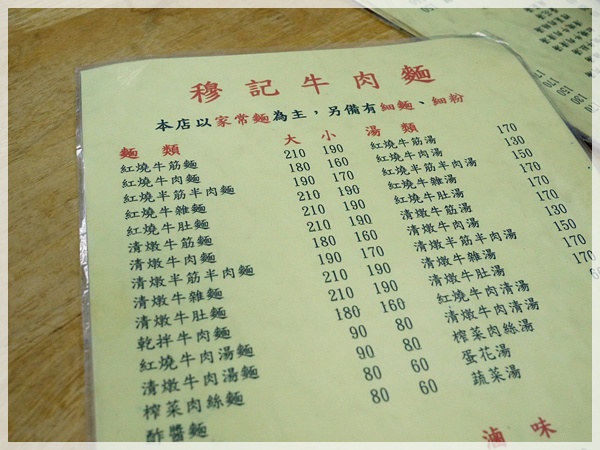 穆記牛肉麵
本店以家常麵為主，另備有細麵、細粉
麵類 大 小
紅燒牛筋麵 210 190
紅燒牛肉麵 180 160
紅燒半筋半肉麵 190 170
紅燒牛雜麵 210 190
紅燒牛肚麵 210 190
清燉牛筋麵 210 190
清燉牛肉麵 180 160
清燉半筋半肉麵 190 170
清燉牛雜麵 210 190
清燉牛肚麵 210 190
乾拌牛肉麵 180 160
紅燒牛肉湯麵 90 80
清燉牛肉湯麵 90 80
榨菜肉絲麵 80 60
酢醬麵 80 60
湯類
紅燒牛筋湯 170
紅燒牛肉湯 130
紅燒半筋半肉湯 150
紅燒牛雜湯 170
紅燒牛肚湯 170
清燉牛筋湯 170
清燉牛肉湯 130
清燉半筋半肉湯 150
清燉牛雜湯 170
清燉牛肚湯 170
紅燒牛肉清湯
清燉牛肉清湯
榨菜肉絲湯
蛋花湯
蔬菜湯
滷味